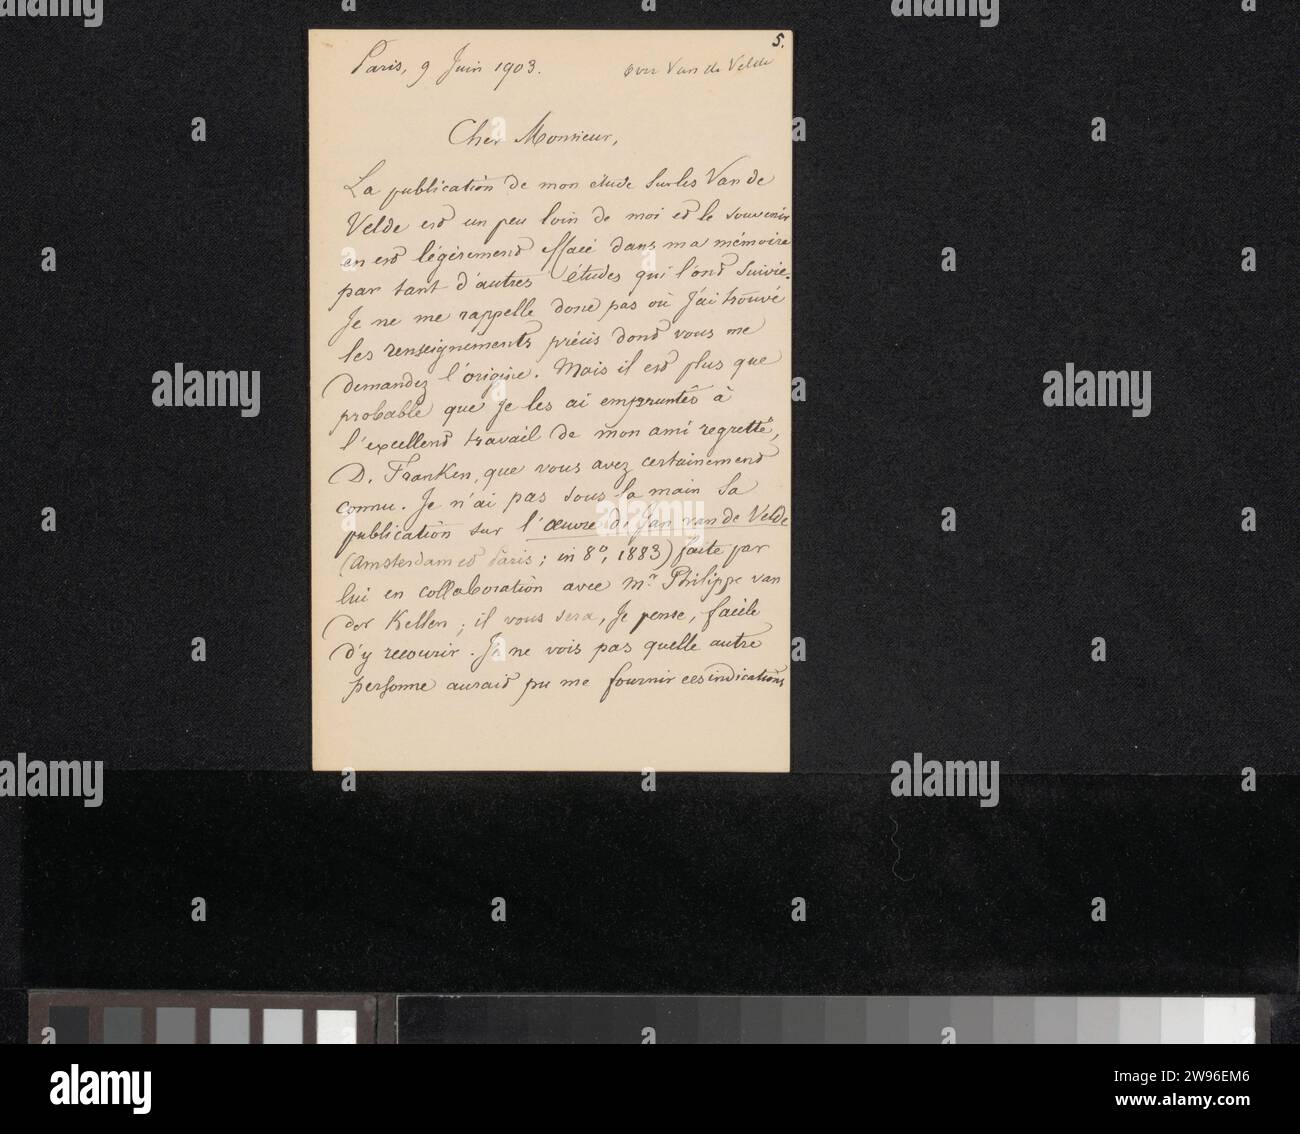 5.
Paris, 9 Juin 1903.
over Van de Velde
Cher Monsieur,
La publication de mon étude sur les Van de
Velde est un peu loin de moi et le souvenir
en est légèrement effacé dans ma mémoire
par tant d'autres études qui l'ont suivie.
Je ne me rappelle donc pas où j'ai trouvé
les renseignements précis dont vous me
demandez l'origine. Mais il est plus que
probable que je les ai empruntés à
l'excellent travail de mon ami regretté,
D. Franken, que vous avez certainement
connu. Je n'ai pas sous la main sa
publication sur l'œuvre de Jan van de Velde
(Amsterdam et Paris; in 8º, 1883) faite par
lui en collaboration avec Mr Philippe van
der Kellen; il vous sera, je pense, facile
d'y recourir. Je ne vois pas quelle autre
personne aurait pu me fournir ces indications
alamy
Image ID: 2W96EM6
www.alamy.com